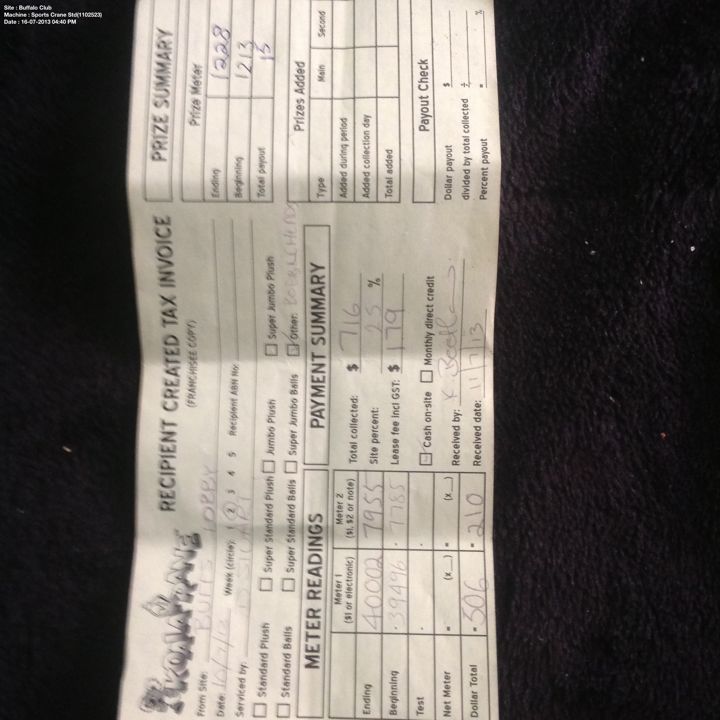 Site : Buffalo Club
Machine : Sports Crane Std(1102523)
Date : 16-07-2013 04:40 PM
RECIPIENT CREATED TAX INVOICE
(FRANCHISEE COPY)
From Site: BUFFS LOBBY
Date:
Week (circle): 1 2 3 4 5 Recipient ABN No:
Serviced by:
Standard Plush Super Standard Plush Jumbo Plush Super Jumbo Plush
Standard Balls Super Standard Balls Super Jumbo Balls Other:
METER READINGS
Meter 1 ($1 or electronic) Meter 2 ($1, $2 or note)
Ending 40002 7955
Beginning 39496 7785
Test
Net Meter = (x__) = (x__)
Dollar Total = 506 = 210
PAYMENT SUMMARY
Total collected: $ 716
Site percent: 25 %
Lease fee incl GST: $ 179
Cash on-site Monthly direct credit
Received by:
Received date: 11/7/13
PRIZE SUMMARY
Prize Meter
Ending 1228
Beginning 1213
Total payout 15
Prizes Added
Type Main Second
Added during period
Added collection day
Total added
Payout Check
Dollar payout $
divided by total collected ÷
Percent payout = %